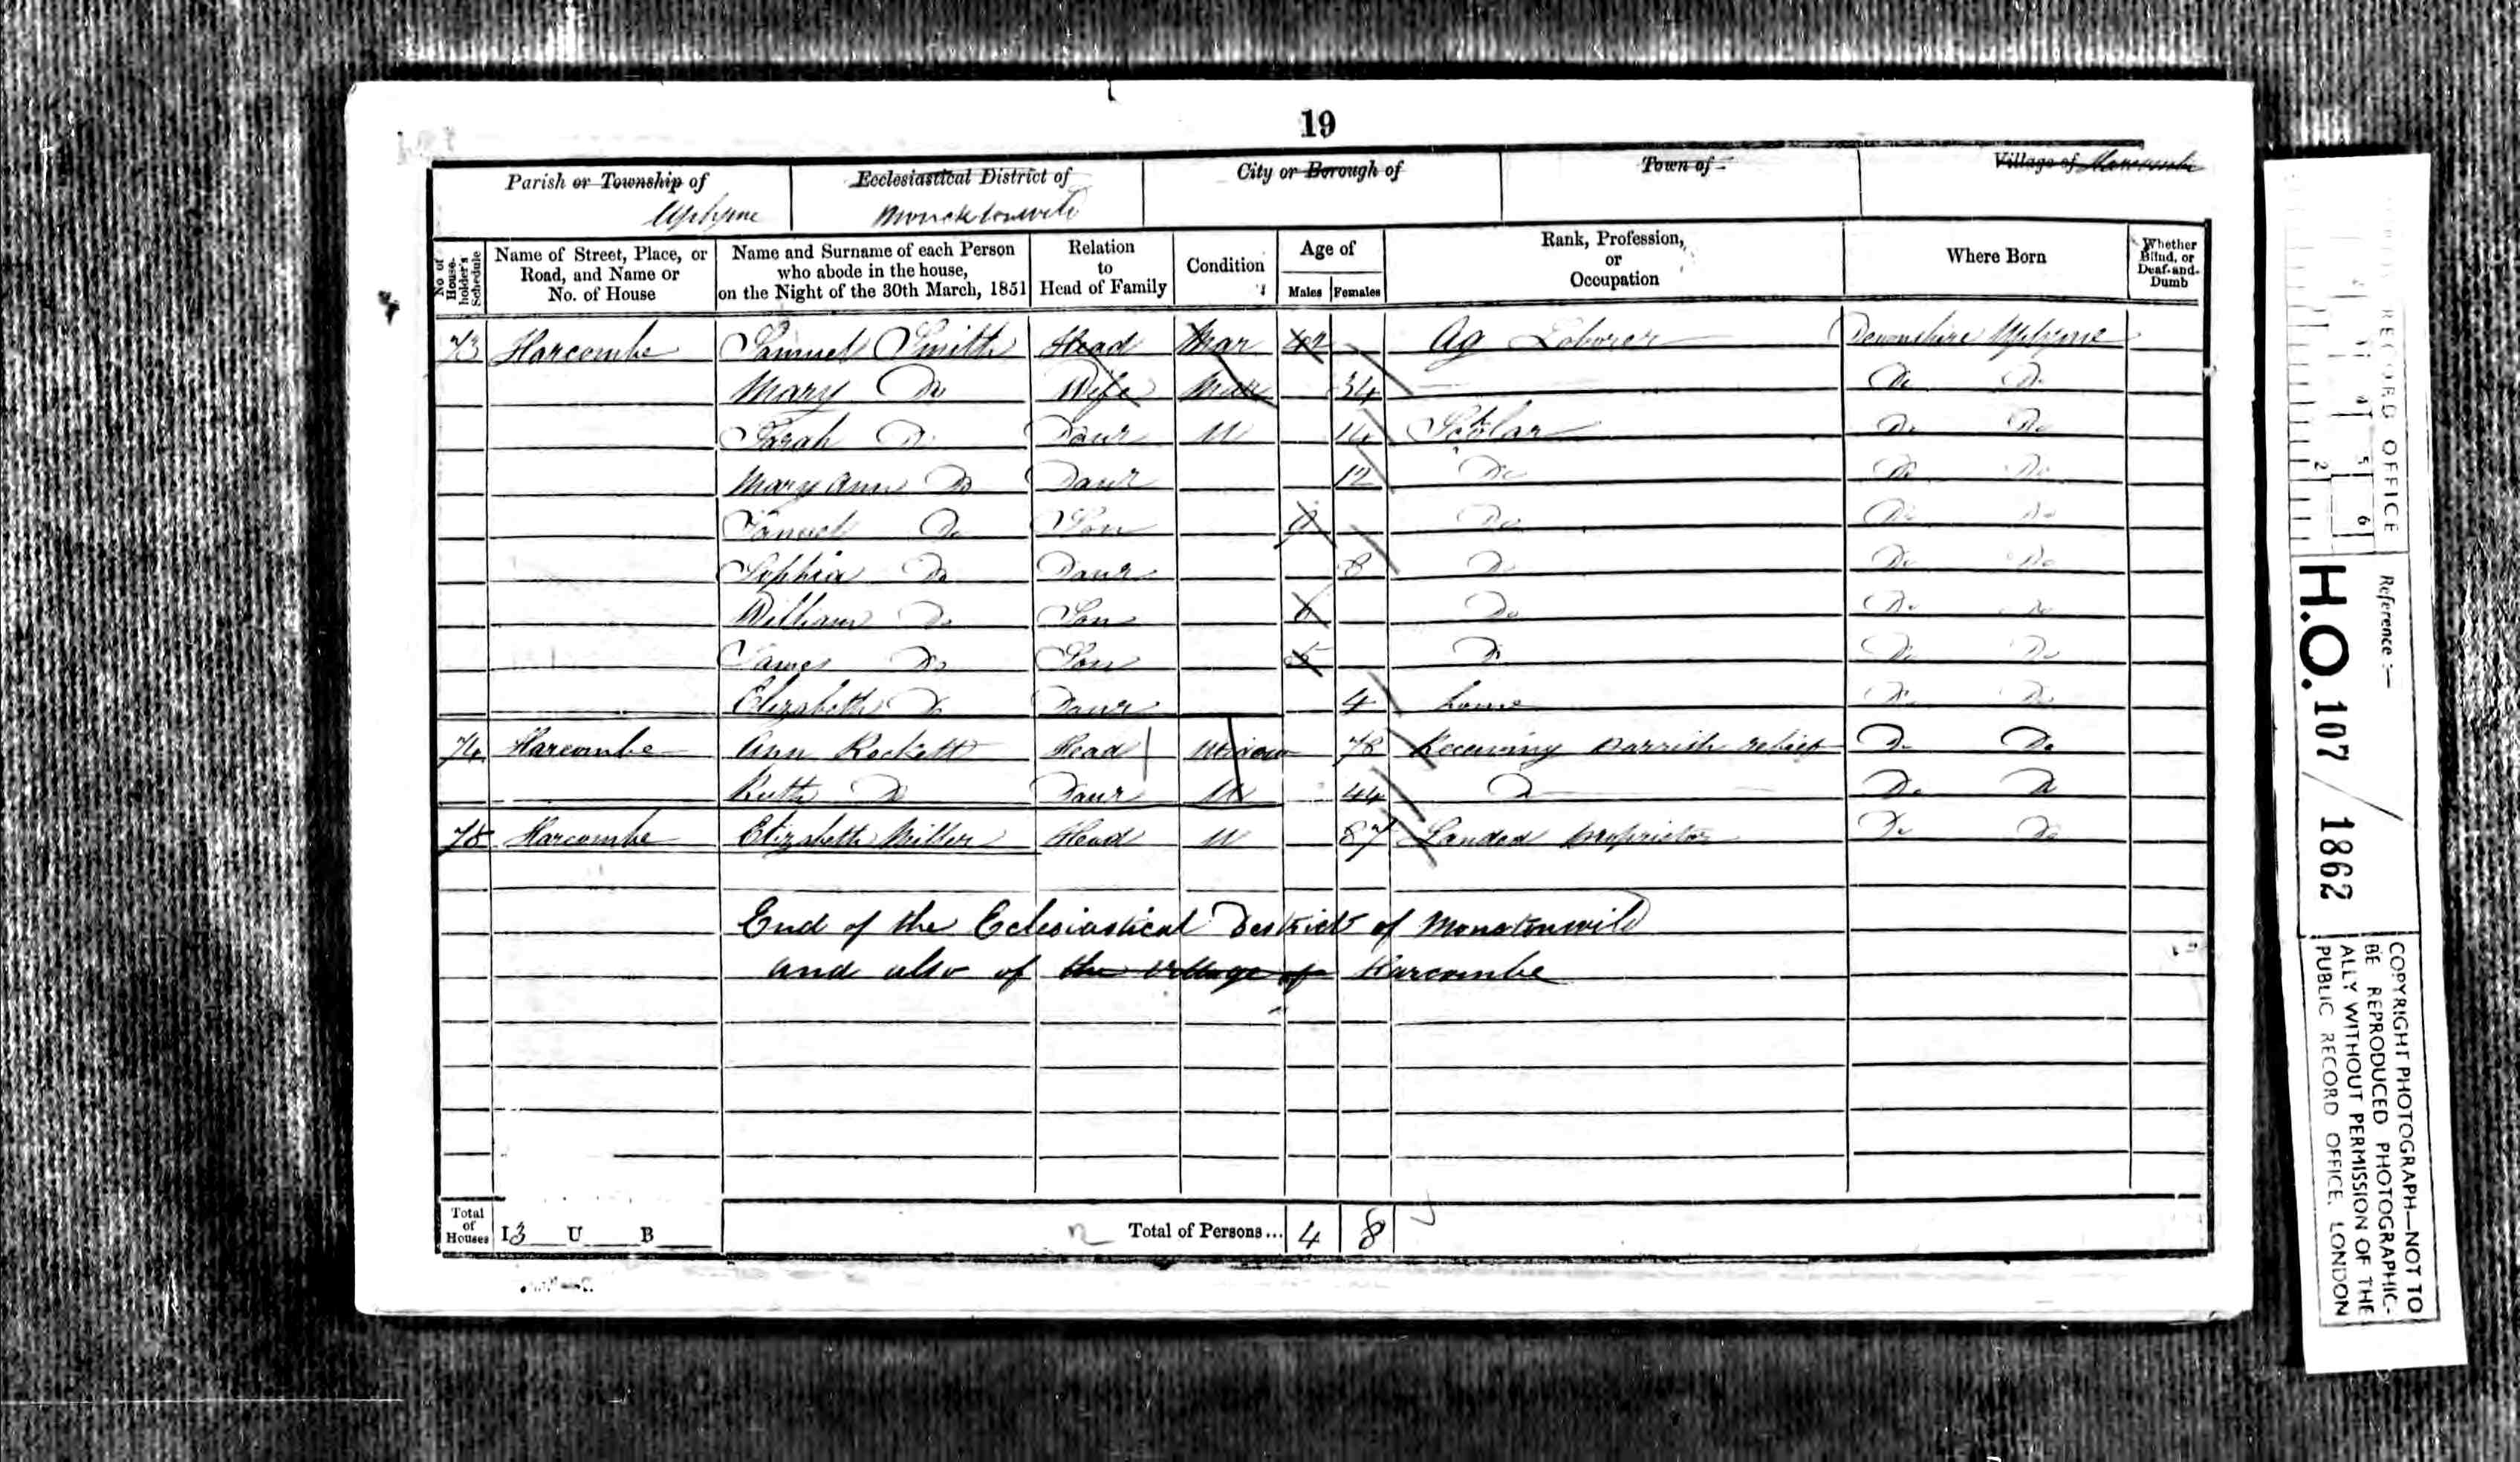 19
Parish or Township of Uplyme
Ecclesiastical District of Moncktonwild
City or Borough of
Town of
Village of Harcombe
No. of House-holder's Schedule
Name of Street, Place, or Road, and Name or No. of House
Name and Surname of each Person who abode in the house, on the Night of the 30th March, 1851
Relation to Head of Family
Condition
Age of
Males Females
Rank, Profession, or Occupation
Where Born
Whether Blind, or Deaf-and-Dumb
73 Harcombe Samuel Smith Head Mar Ag Laborer Devonshire Uplyme
Mary Do Wife Mar 34 Do Do
Sarah Do Daur U 14 Scholar Do Do
Mary Ann Do Daur 12 Do Do Do
Samuel Do Son Do Do Do
Sophia Do Daur 8 Do Do Do
William Do Son 6 Do Do Do
James Do Son 5 Do Do Do
Elizabeth Do Daur 4 home Do Do
74 Harcombe Ann Rockett Head Widow 78 Receiving parrish relief Do Do
Ruth Do Daur U 44 Do Do Do
78 Harcombe Elizabeth Miller Head U 87 Landed proprietor Do Do
End of the Eclesiastical District of Monctonwild
and also of the village of Harcombe
Total of Houses I 3 U B
Total of Persons... 4 8
RECORD OFFICE
Reference :-
H.O. 107 / 1862
COPYRIGHT PHOTOGRAPH—NOT TO
BE REPRODUCED PHOTOGRAPHIC-
ALLY WITHOUT PERMISSION OF THE
PUBLIC RECORD OFFICE, LONDON